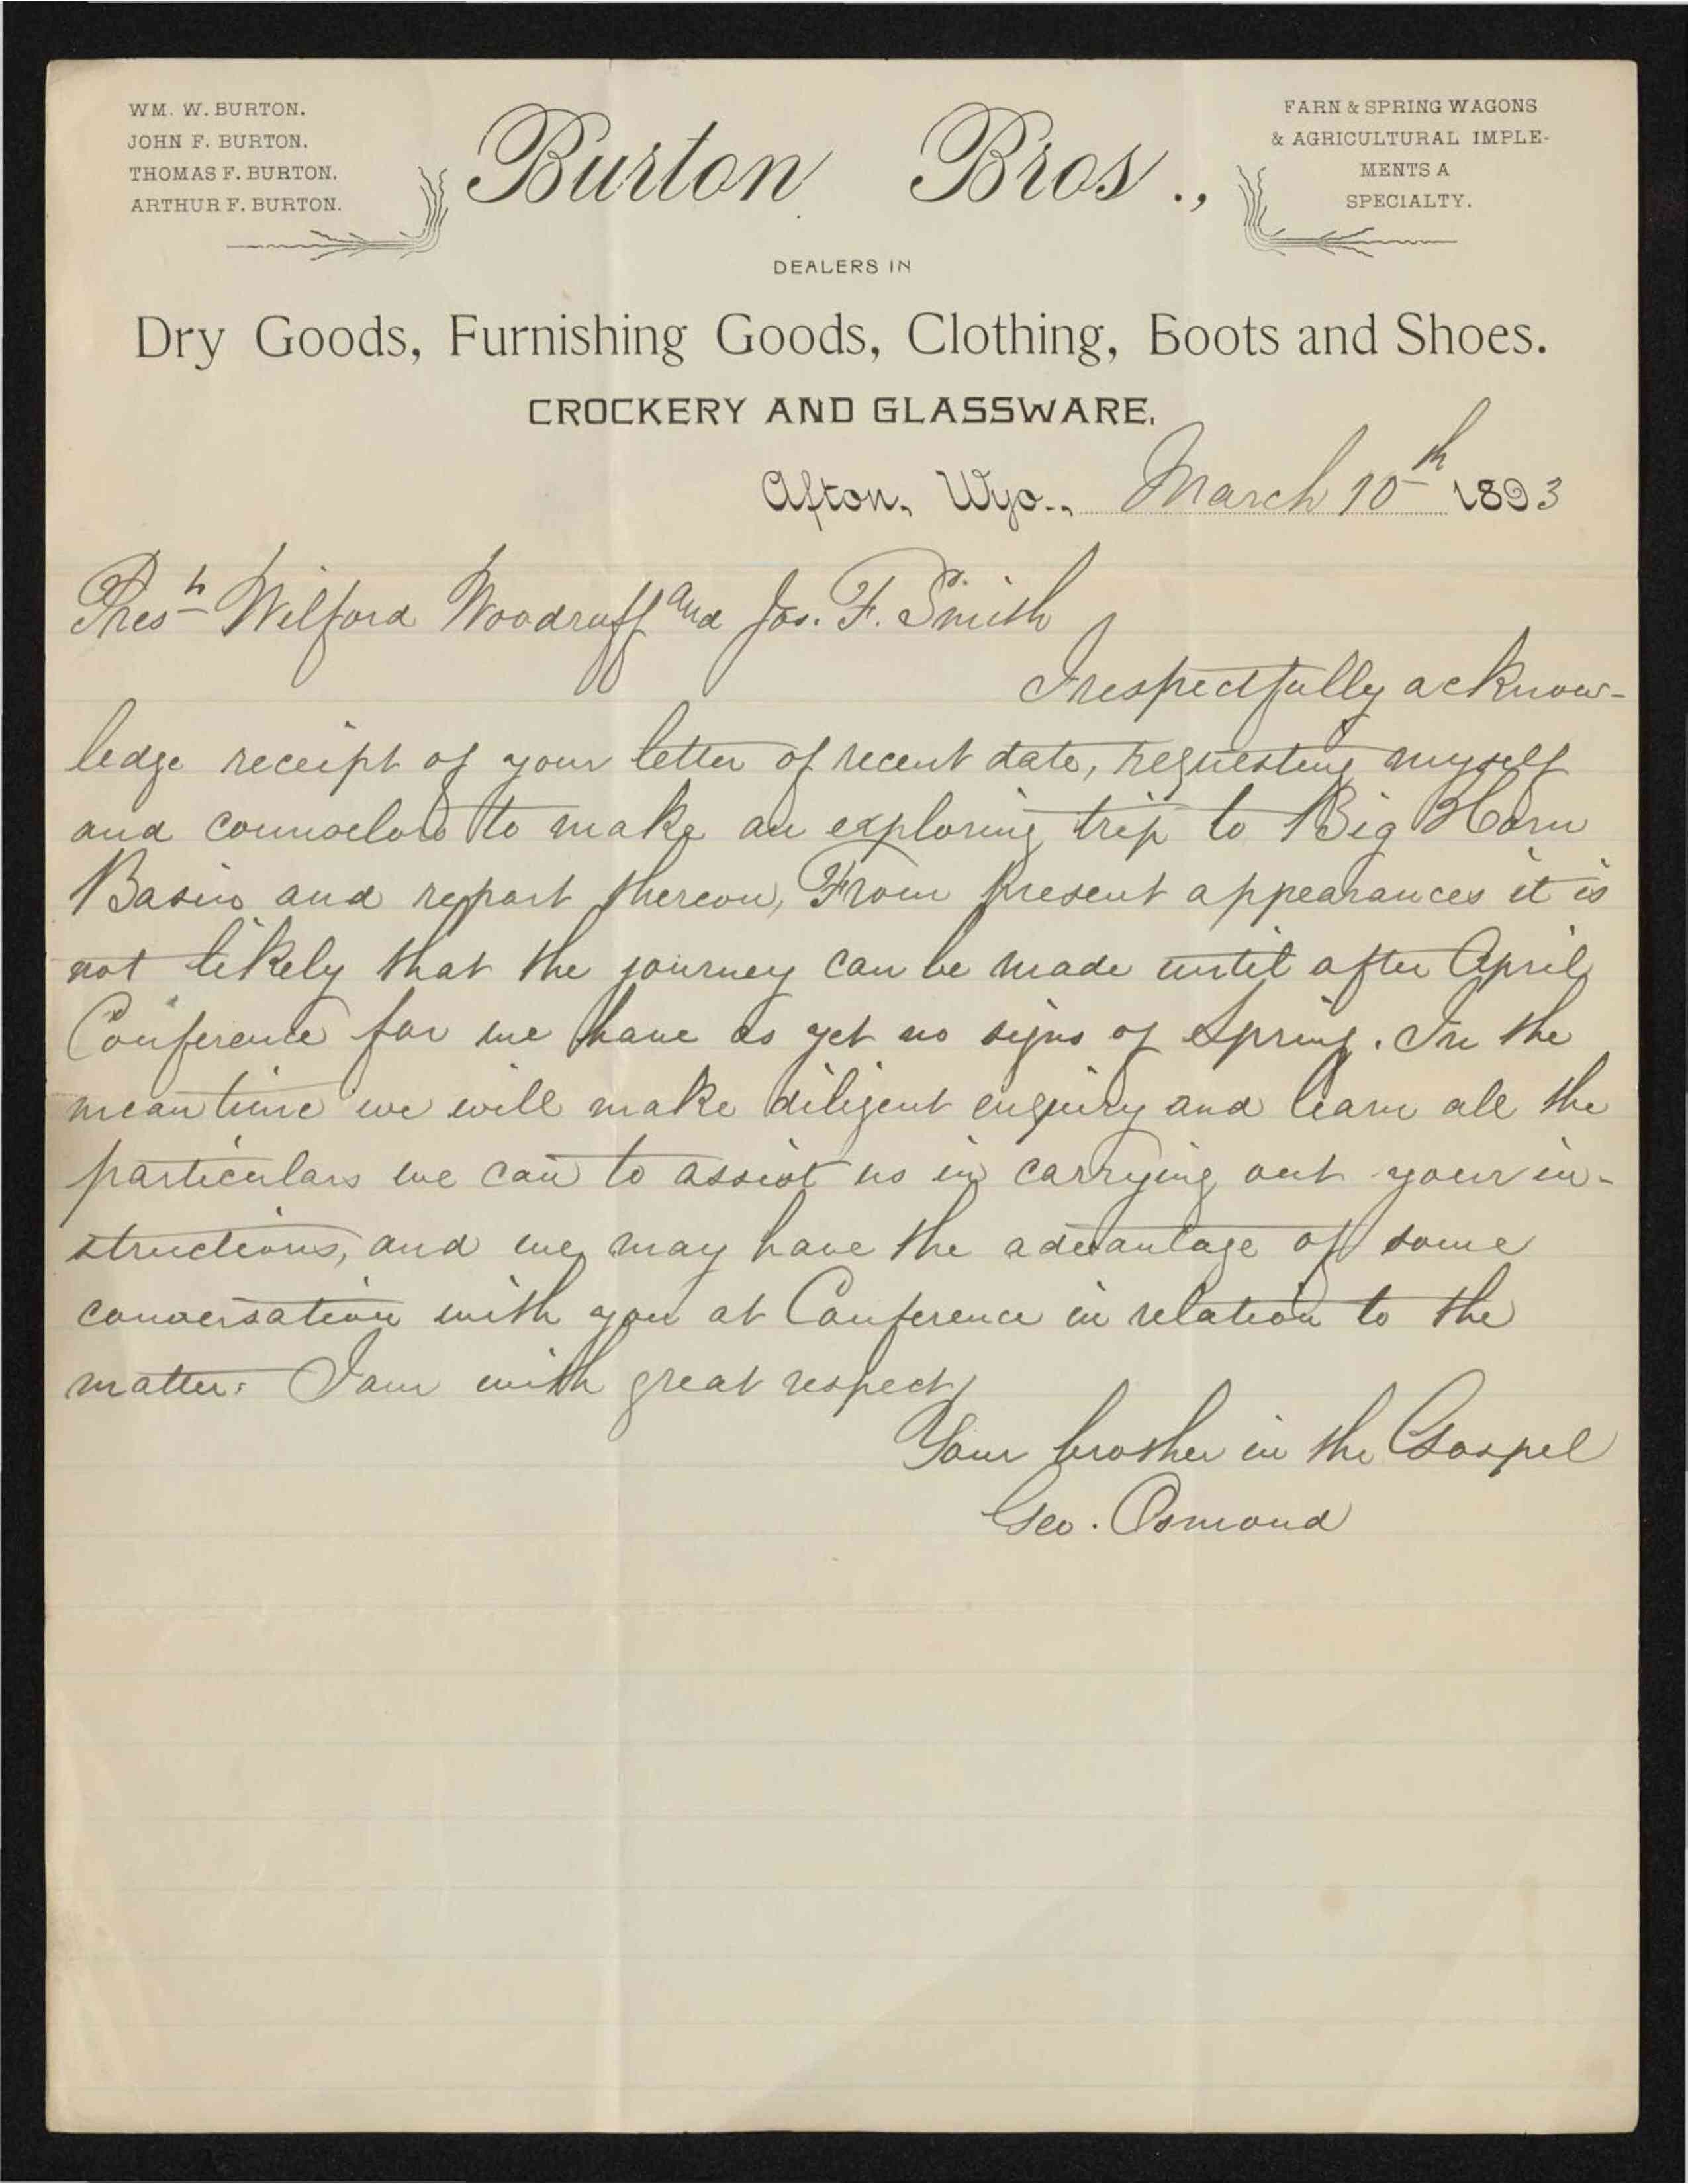 WM. W. BURTON.
JOHN F. BURTON.
THOMAS F. BURTON.
ARTHUR F. BURTON.
Burton Bros.,
FARN & SPRING WAGONS
& AGRICULTURAL IMPLE-
MENTS A
SPECIALTY.
DEALERS IN
Dry Goods, Furnishing Goods, Clothing, Boots and Shoes.
CROCKERY AND GLASSWARE.
Afton, Wyo., March 10th 1893
Prest Wilford Woodruff and Jos. F. Smith
I respectfully acknow-
ledge receipt of your letter of recent date, requesting myself
and counselors to make an exploring trip to Big Horn
Basin and report thereon, From present appearances it is
not likely that the journey can be made until after April
Conference for we have as yet no signs of Spring. In the
meantime we will make diligent enquiry and learn all the
particulars we can to assist us in carrying out your in-
structions, and we may have the advantage of some
conversation with you at Conference in relation to the
matter. I am with great respect,
Your brother in the Gospel
Geo. Osmond